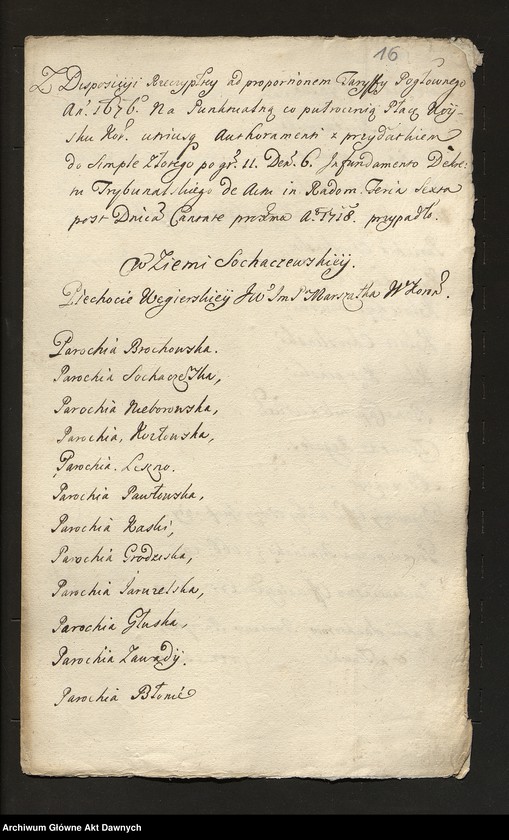 16
Z Dispozycyi Rzeczyptey ad proportionem Taryffy Pogłownego
An. 1676. Na Punktualną co pułrocznią Płacę Woy-
sku Kor. utriusq Authoramenti z przydatkiem
do Simple Złotego po gr. 11. Den. 6. In fundamento Dekre:
tu Trybunalskiego de Actu in Radom. Feria Sexta
post Dnicā Cantate proxima A. 1718. przypadło.
w Ziemi Sochaczewskiey.
Piechocie Węgierskiey Jm Marszałka W
Parochia Brochowska.
Parochia Sochaczewska,
Parochia Nieborowska,
Parochia, Kozłowska,
Parochia. Leszno.
Parochia Pawłowska,
Parochia Kaski,
Parochia Grodziska,
Parochia Jaruzelska,
Parochia Głuska,
Parochia Zawady.
Parochia Błonie
Archiwum Główne Akt Dawnych